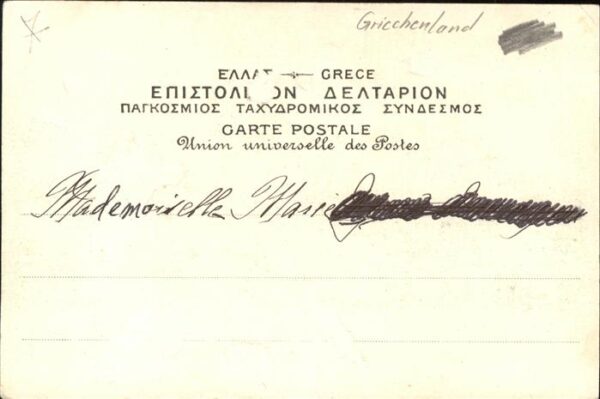 Griechenland
ΕΛΛΑΣ — GRECE
ΕΠΙΣΤΟΛΙ ΟΝ ΔΕΛΤΑΡΙΟΝ
ΠΑΓΚΟΣΜΙΟΣ ΤΑΧΥΔΡΟΜΙΚΟΣ ΣΥΝΔΕΣΜΟΣ
CARTE POSTALE
Union universelle des Postes
Mademoiselle Marie